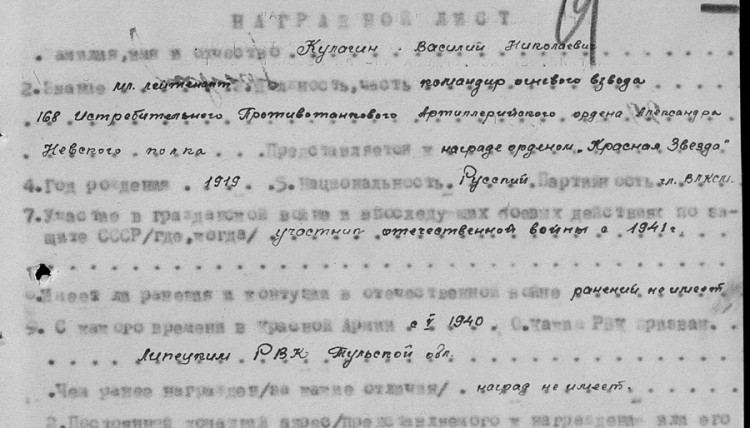 НАГРАДНОЙ ЛИСТ
Фамилия, имя и отчество Кулагин Василий Николаевич
2. Звание мл. лейтенант 3. Должность, часть командир огневого взвода
168 Истребительного Противотанкового Артиллерийского ордена Александра
Невского полка Представляется к награде орденом „Красная Звезда"
4. Год рождения 1919 5. Национальность Русский Партийность чл. ВЛКСМ
7. Участие в гражданской войне и в последующих боевых действиях по за-
щите СССР/где, когда/ участник отечественной войны с 1941 г
8. Имеет ли ранения и контузии в отечественной войне ранений не имеет
9. С какого времени в Красной Армии с V 1940 О. Каким РВК призван
Липецким РВК Тульской обл.
Чем ранее награжден/за какие отличия/ наград не имеет.
2. Постоянный домашний адрес/представляемого к награждению или его